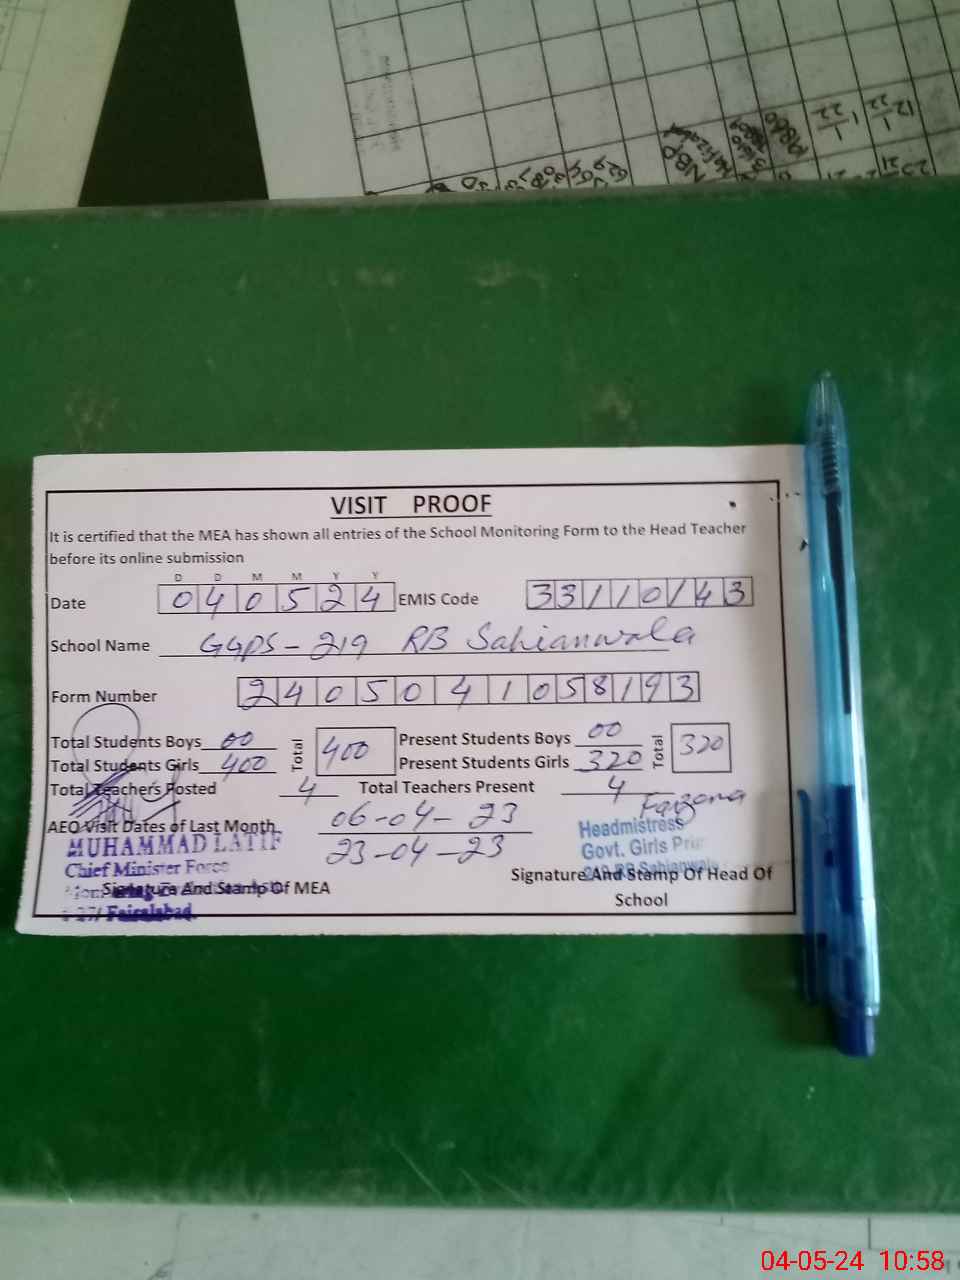 VISIT PROOF
It is certified that the MEA has shown all entries of the School Monitoring Form to the Head Teacher
before its online submission
D D M M Y Y
Date 040524 EMIS Code 33110143
School Name GGPS - 219 RB Sahianwala
Form Number 2405041058193
Total Students Boys 00 Total 400 Present Students Boys 00 Total 320
Total Students Girls 400 Present Students Girls 320
Total Teachers Posted 4 Total Teachers Present 4
AEO Visit Dates of Last Month 06-04-23
23-04-23
MUHAMMAD LATIF
Chief Minister Force
Faisalabad
Signature And Stamp Of MEA
Faizana
Headmistress
Govt. Girls
RB Sahianwala
Signature And Stamp Of Head Of
School
04-05-24 10:58